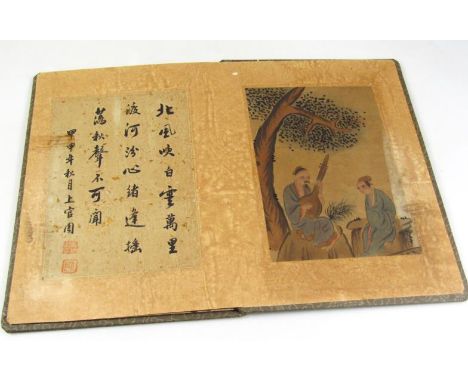 北風吹白雲萬里
渡河汾心緒逢搖
落秋聲不可聞
甲申年秋月上官周